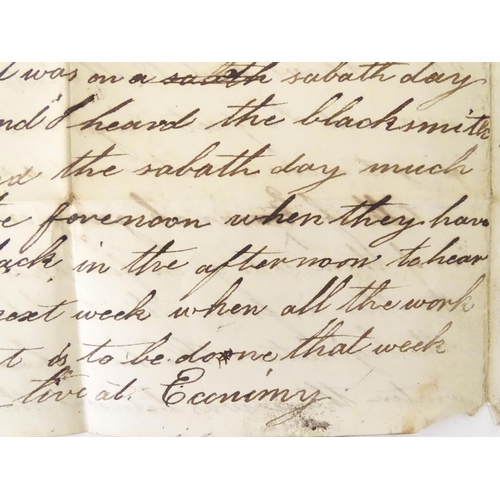 was on a sabath sabath day
I heard the blacksmith
the sabath day much
forenoon when they have
back in the afternoon to hear
next week when all the work
is to be done that week
live at Econimy